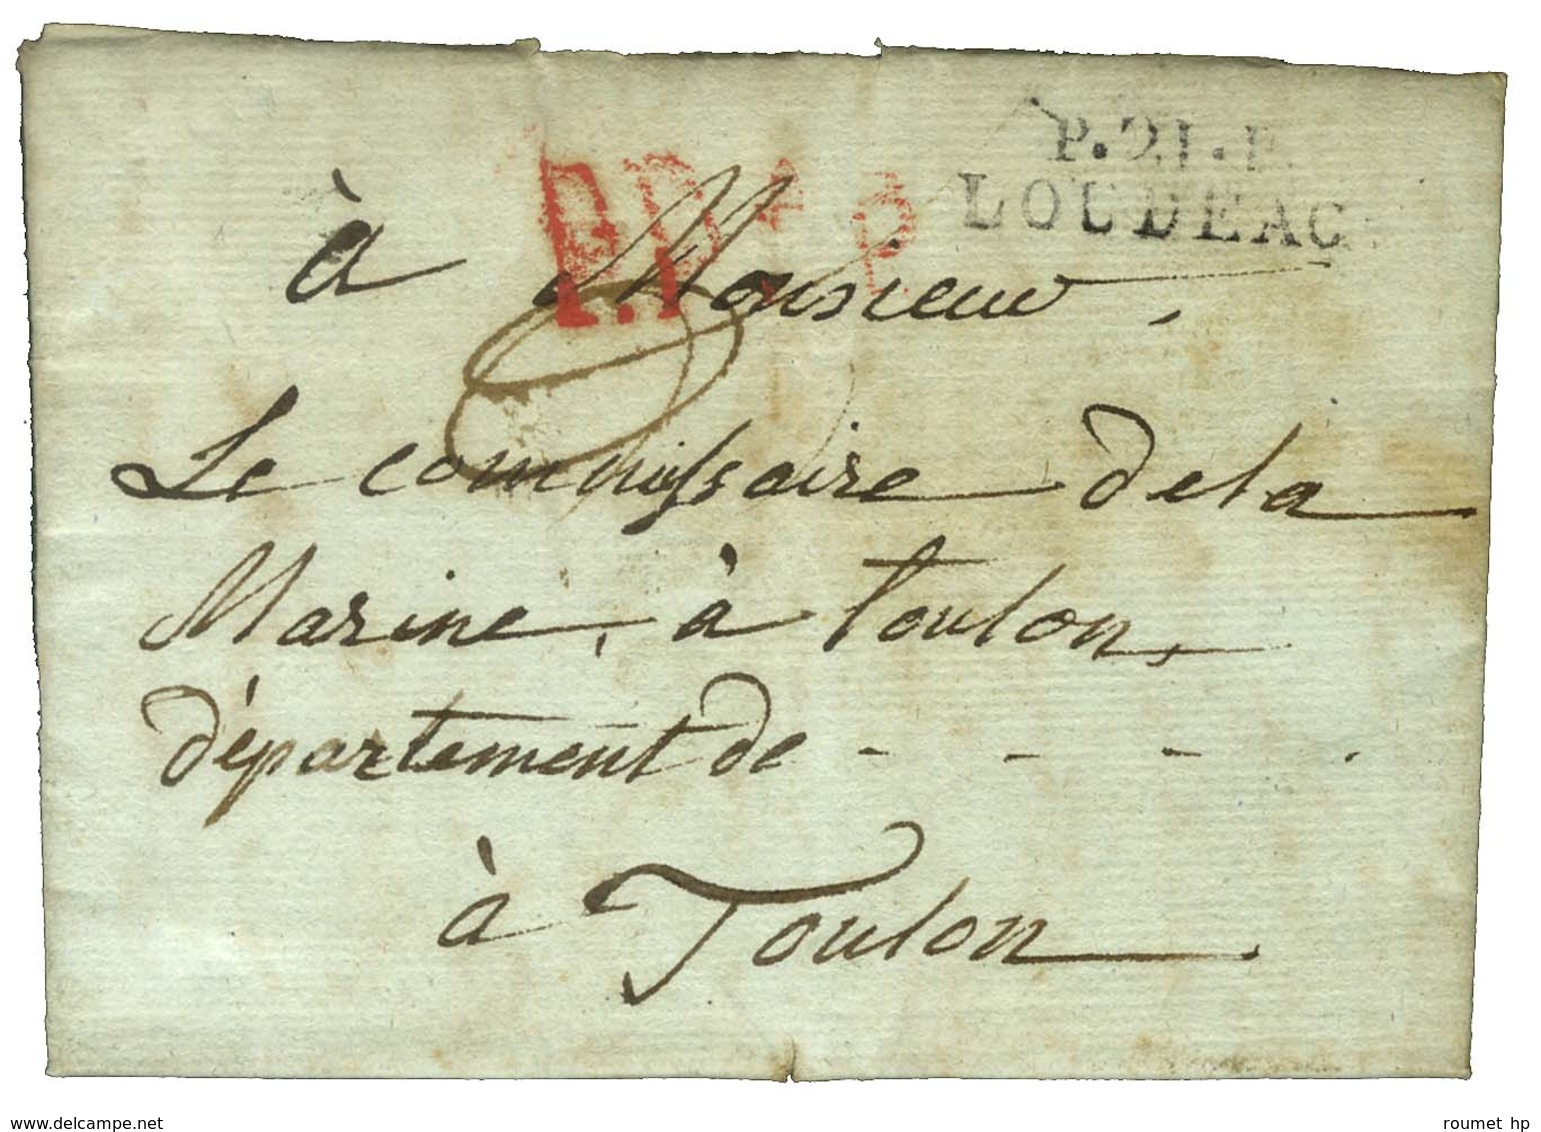 P.21.P.
LOUDEAC
à Monsieur,
Le commissaire de la
Marine, à Toulon,
département de - - - .
à Toulon
www.delcampe.net
roumet hp